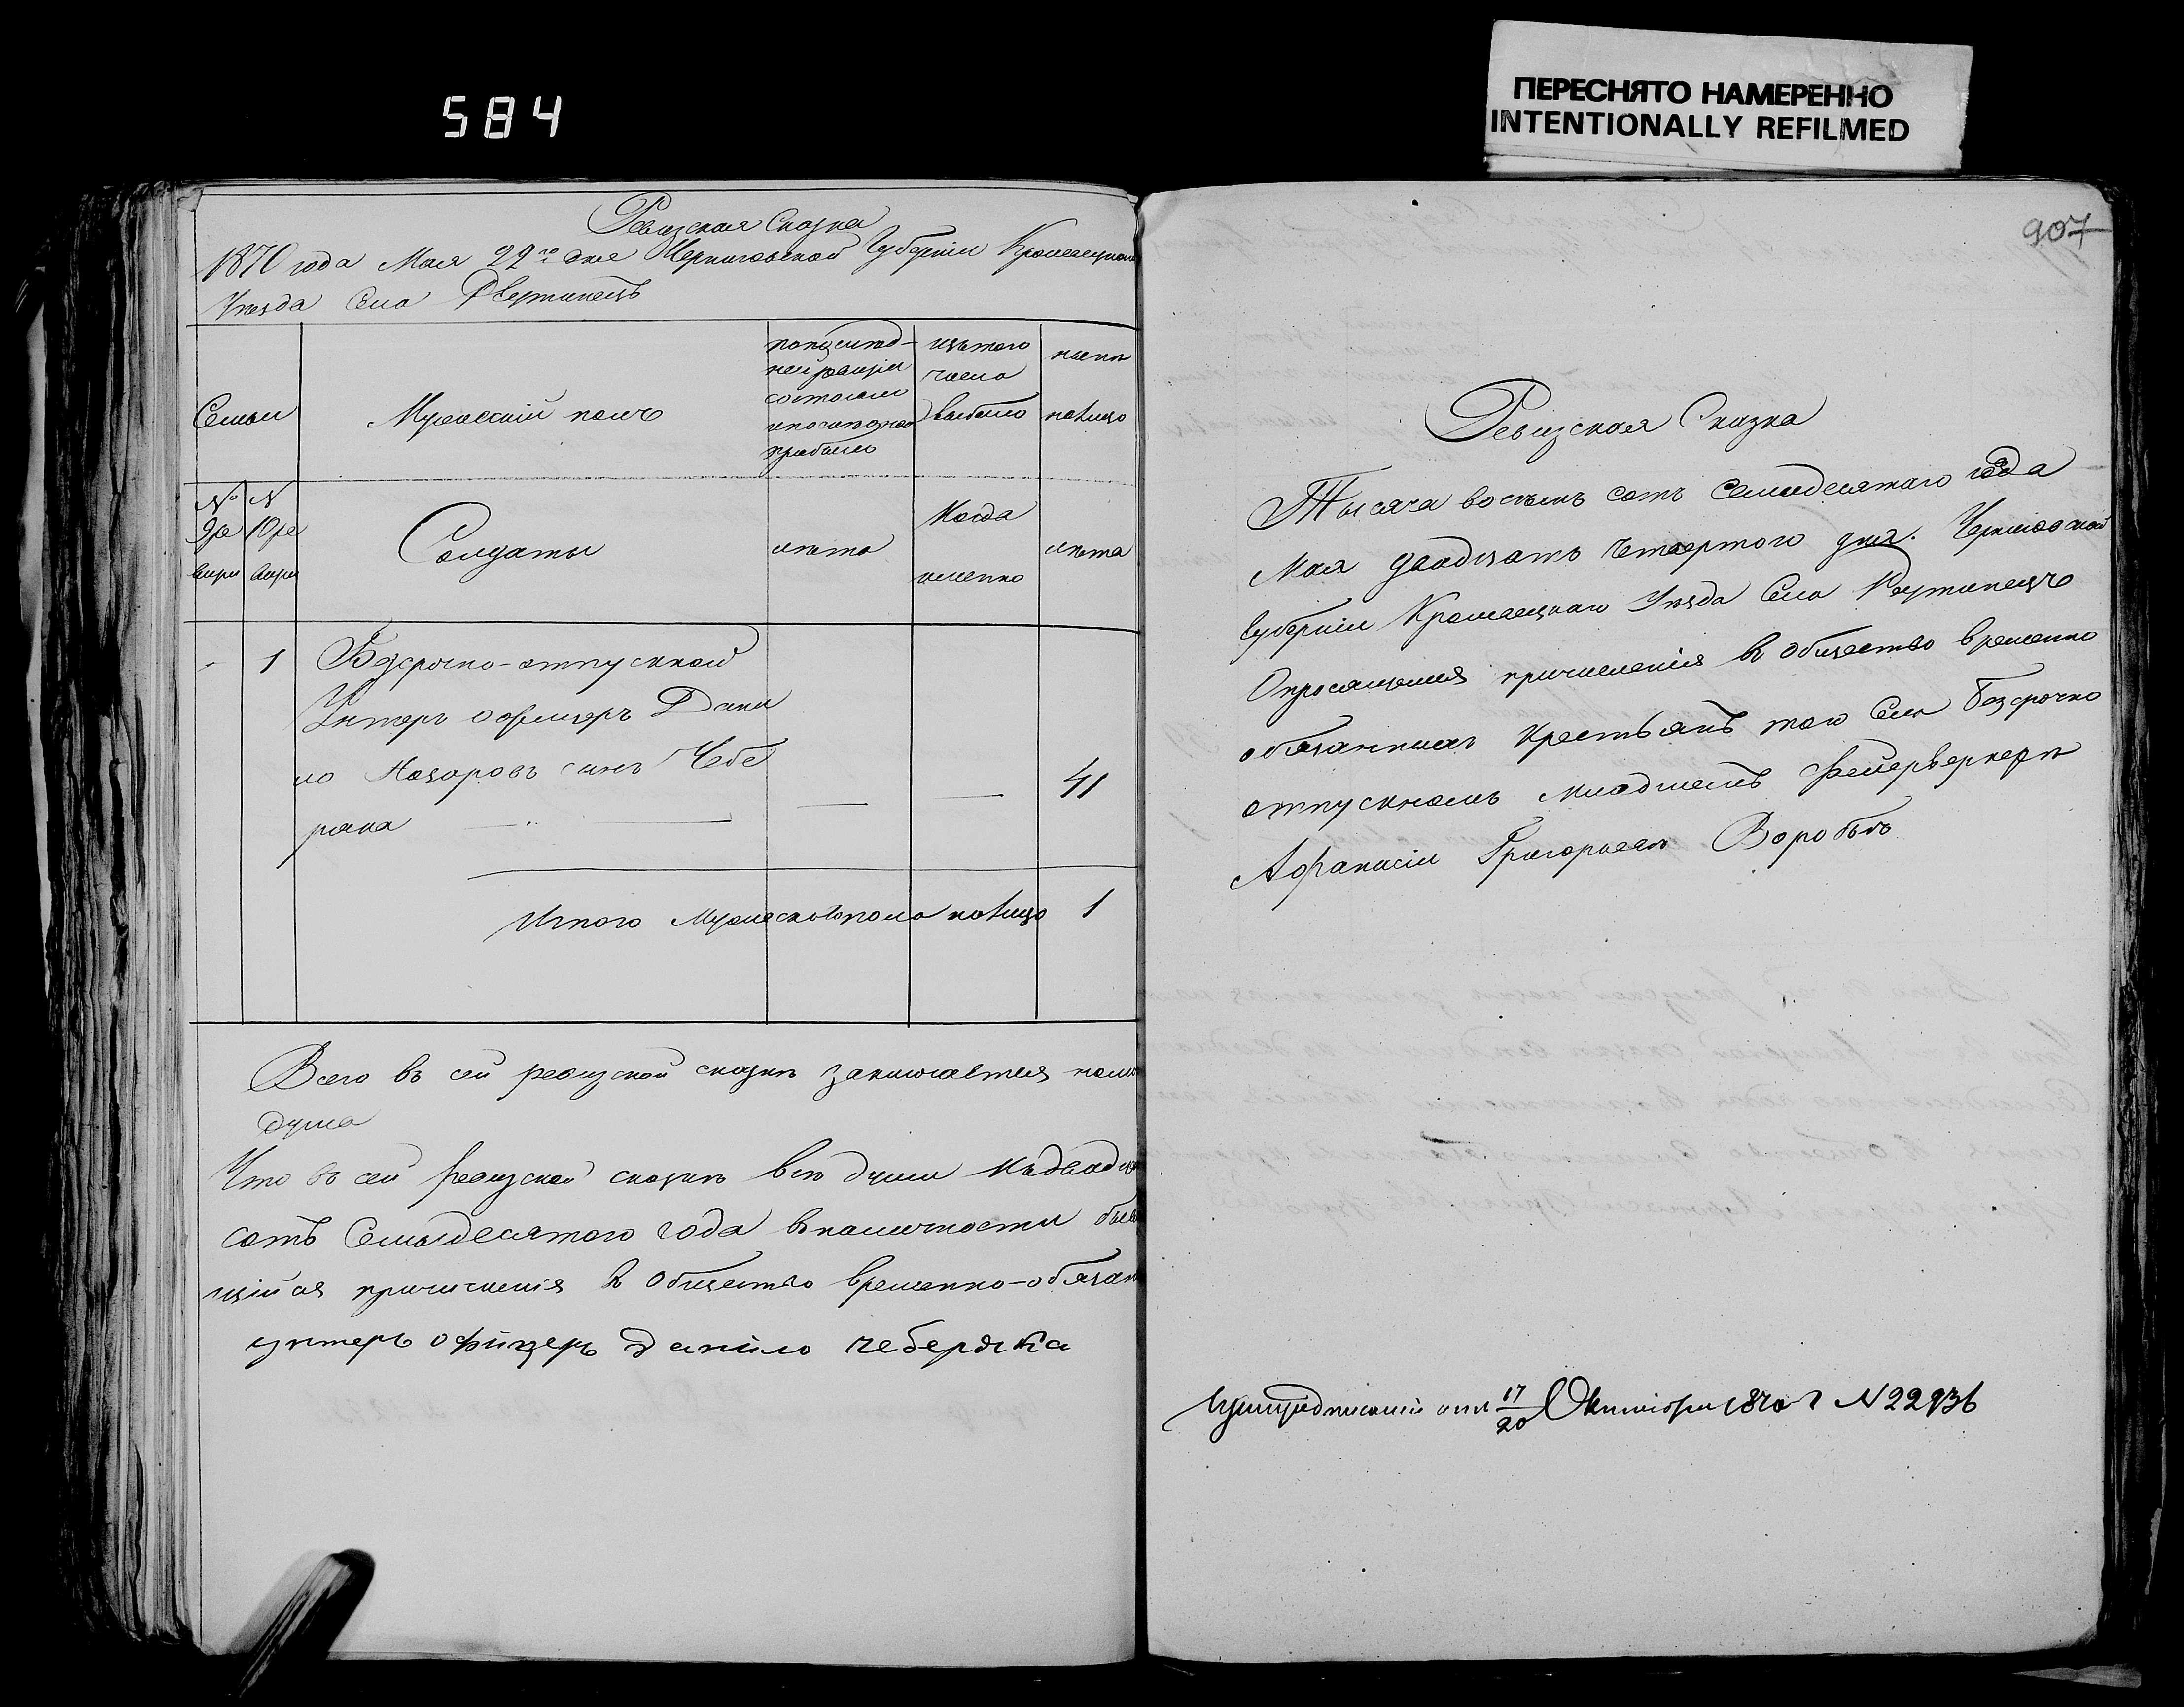 584
ПЕРЕСНЯТО НАМЕРЕННО
INTENTIONALLY REFILMED
Ревизская Сказка
1870 года Мая 22го дня Черниговской Губерніи Кролевецкаго
Уѣзда Села
Семьи
Мужескій полъ
по послѣд-
ней ревизіи
состояло
и послѣ оной
прибыло
изъ того
числа
выбыло
нынѣ
налицо
№ N
9 ре 10 ре
визіи визіи
Солдаты
лѣта
Когда
именно
лѣта
- 1 Безсрочно-отпускной
Унтеръ офицеръ Дани
ло Назаровъ сынъ Чебе
ряка — — 41
Итого Мужеска пола налицо 1
Всего въ сей ревизской сказкѣ заключается
душа
Что въ сей ревизской сказкѣ всѣ души
сотъ Семьдесятого года въ наличности
щійся причисленія въ Общество временно-обязан
унтеръ офицеръ Данило чеберяка
907
Ревизская Сказка
Тысяча восемь сотъ Семидесятого года
Мая двадцать четвертого дня. Черниговской
Губерніи Кролевецкаго Уѣзда Села
О просящемся причисленія въ Общество временно
обязанныхъ крестьянъ того Села безсрочно
отпускномъ младшемъ фейерверкерѣ
Афанасіи Григорьевѣ Воробьѣ
17
20 Октября 1870 г N 22936